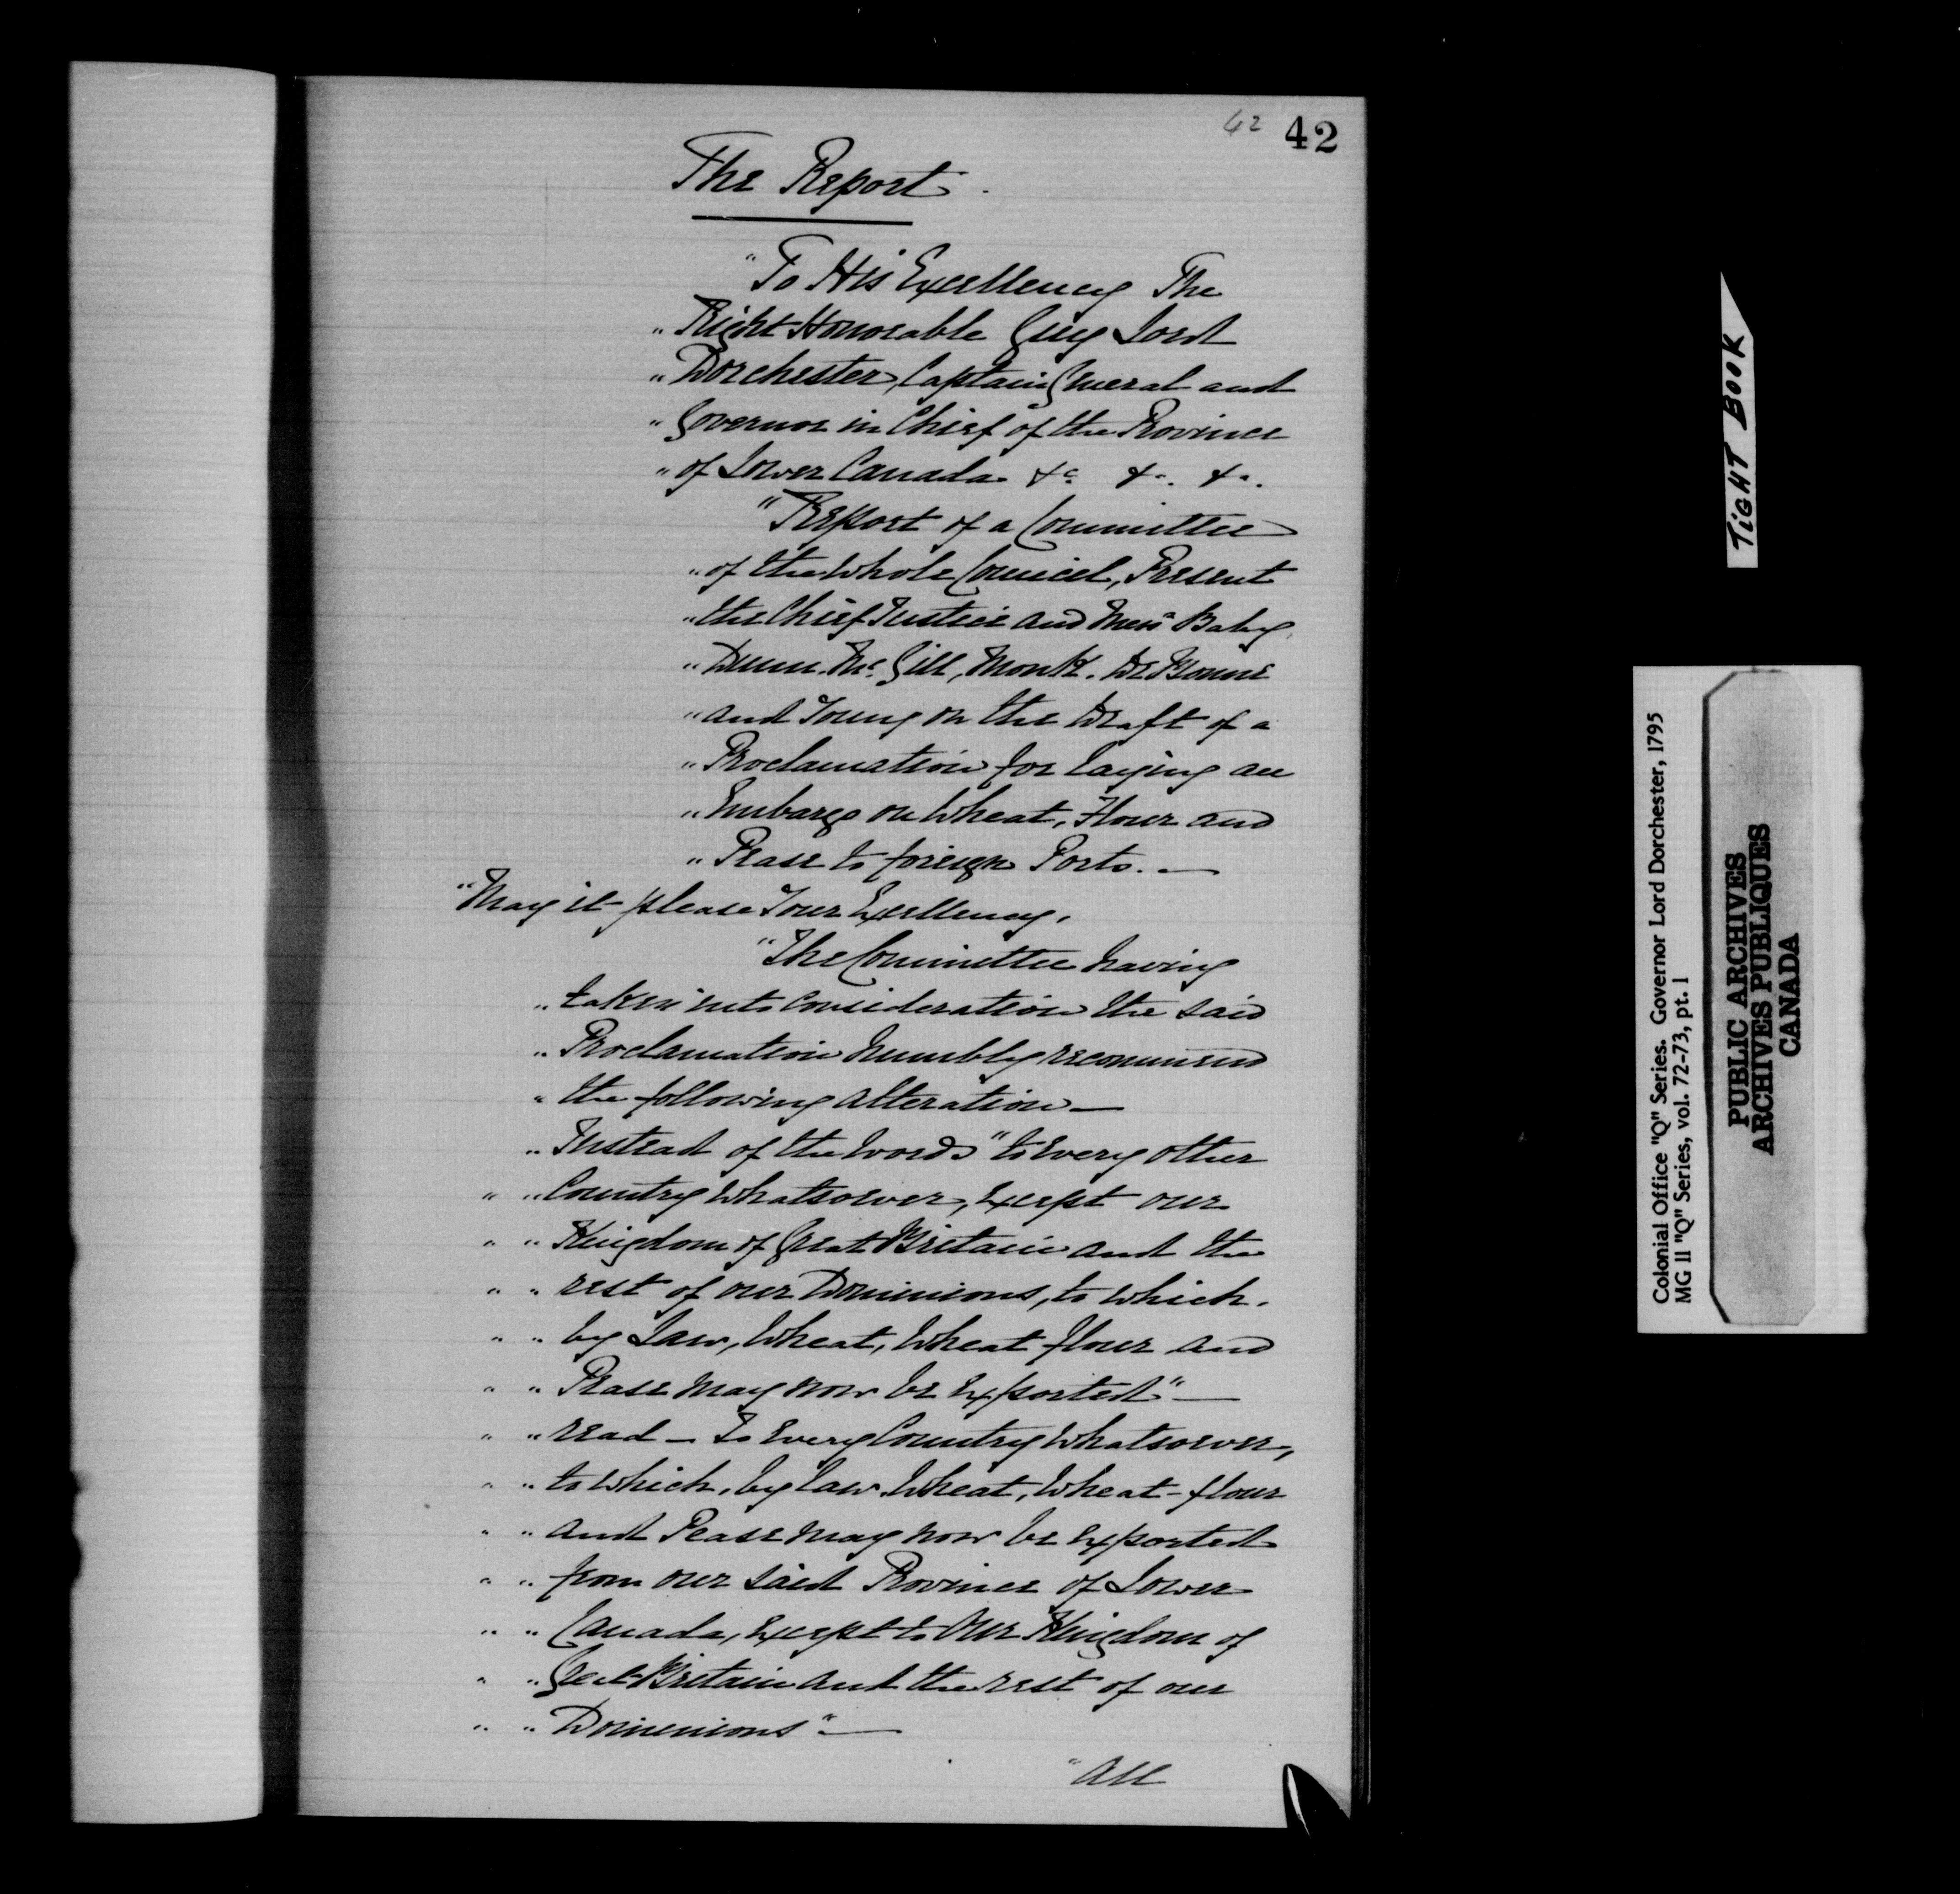 42 42
The Report.
"To His Excellency The
"Right Honorable Guy Lord
"Dorchester, Captain General and
"Governor in Chief of the Province
"of Lower Canada &c &c. &c.
"Report of a Committee
"of the whole Council, Present
"the Chief Justice and Mess.rs Baby,
"Dunn, Mc.Gill, Monk, De Bonne
"and Young on the Draft of a
"Proclamation for laying an
"Embargo on Wheat, Flour and
"Pease to foreign Ports.—
"May it please Your Excellency,
"The Committee having
"taken into consideration the said
"Proclamation humbly recommend
"the following alteration—
"Instead of the words "to every other
" "Country whatsoever, except our
" "Kingdom of Great Britain and the
" "rest of our Dominions, to which,
" "by Law, Wheat, Wheat flour and
" "Pease may now be exported"—
" "read — to every Country whatsoever,
" "to which, by law, Wheat, Wheat-flour
" "and Pease may now be exported
" "from our said Province of Lower
" "Canada, except to Our Kingdom of
" "Great Britain and the rest of our
" "Dominions"—
"All
TIGHT BOOK
Colonial Office "Q" Series. Governor Lord Dorchester, 1795
MG 11 "Q" Series, vol. 72-73, pt. 1
PUBLIC ARCHIVES
ARCHIVES PUBLIQUES
CANADA